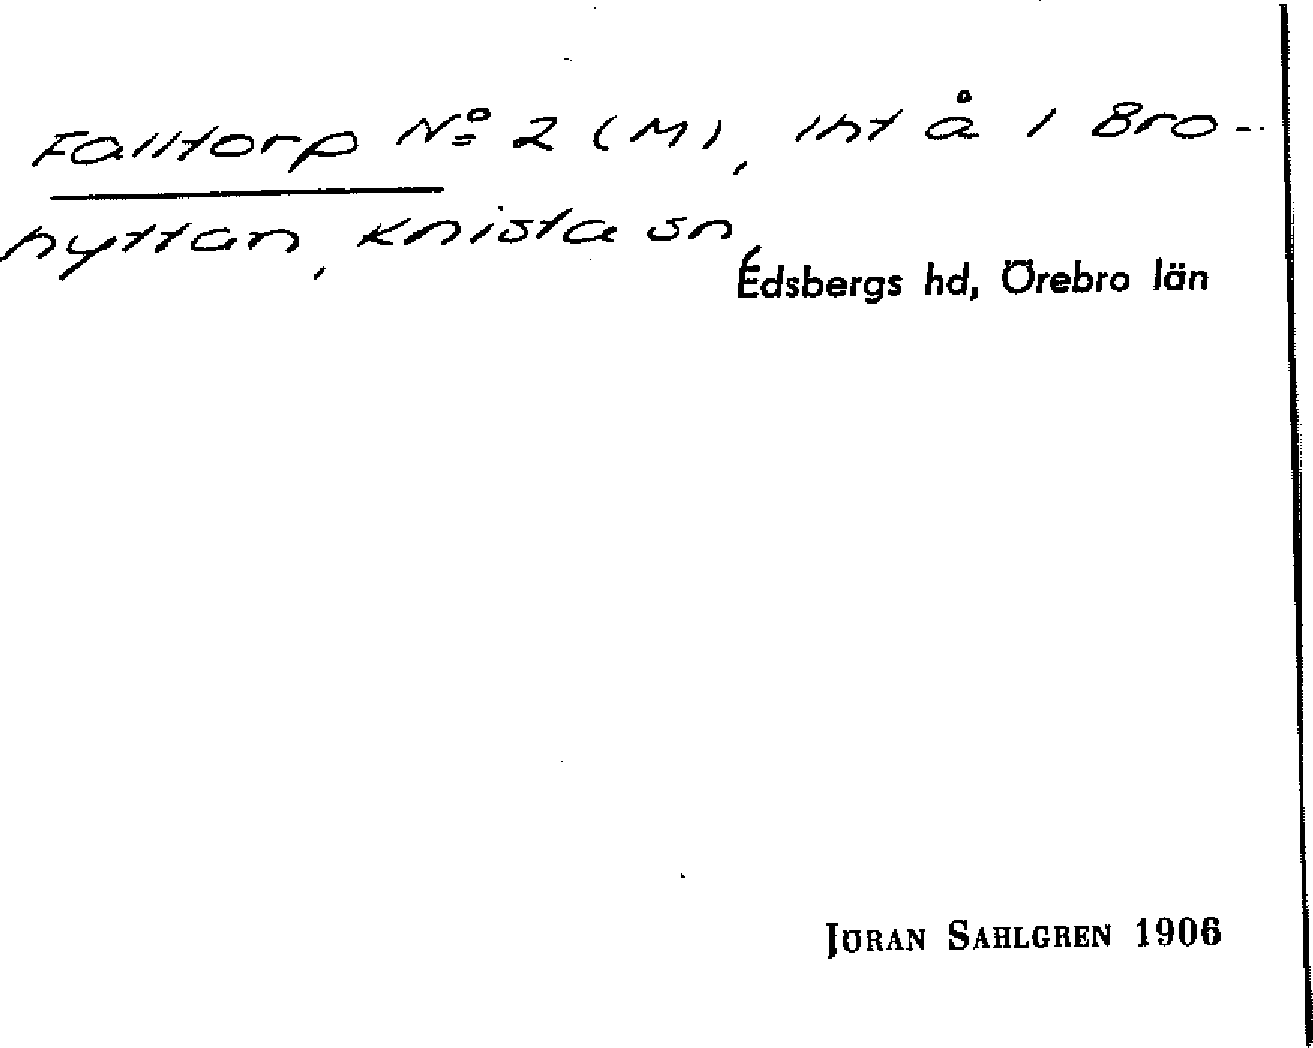 Falltorp Nº 2 (M), int å 1 Bro-
hyttan, Knista sn,
Edsbergs hd, Örebro län
JÖRAN SAHLGREN 1906